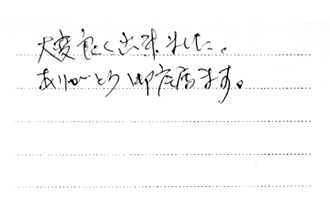 大変良く出来ました。
ありがとう御座居ます。